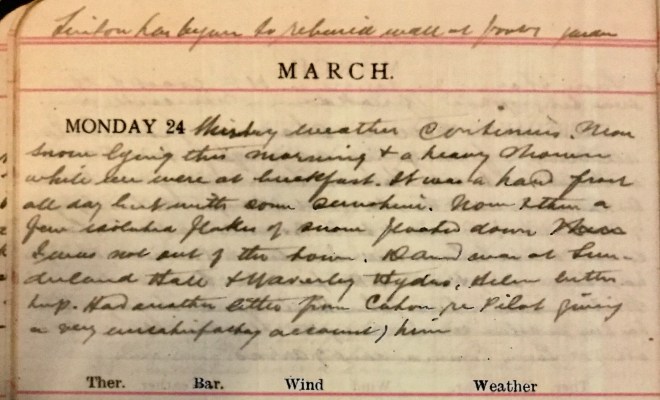 has begun to rebuild wall at front
MARCH.
MONDAY 24 weather continues. More
snow lying this morning & a heavy shower
while we were at breakfast. It was a hard frost
all day but with some sunshine. Now & then a
few isolated flakes of snow floated down
I was not out of the house. was at Sun-
derland Hall & Waverley Hydro, Helen
Had another letter from re Pilot giving
a very unsatisfactory account of him
Ther. Bar. Wind Weather